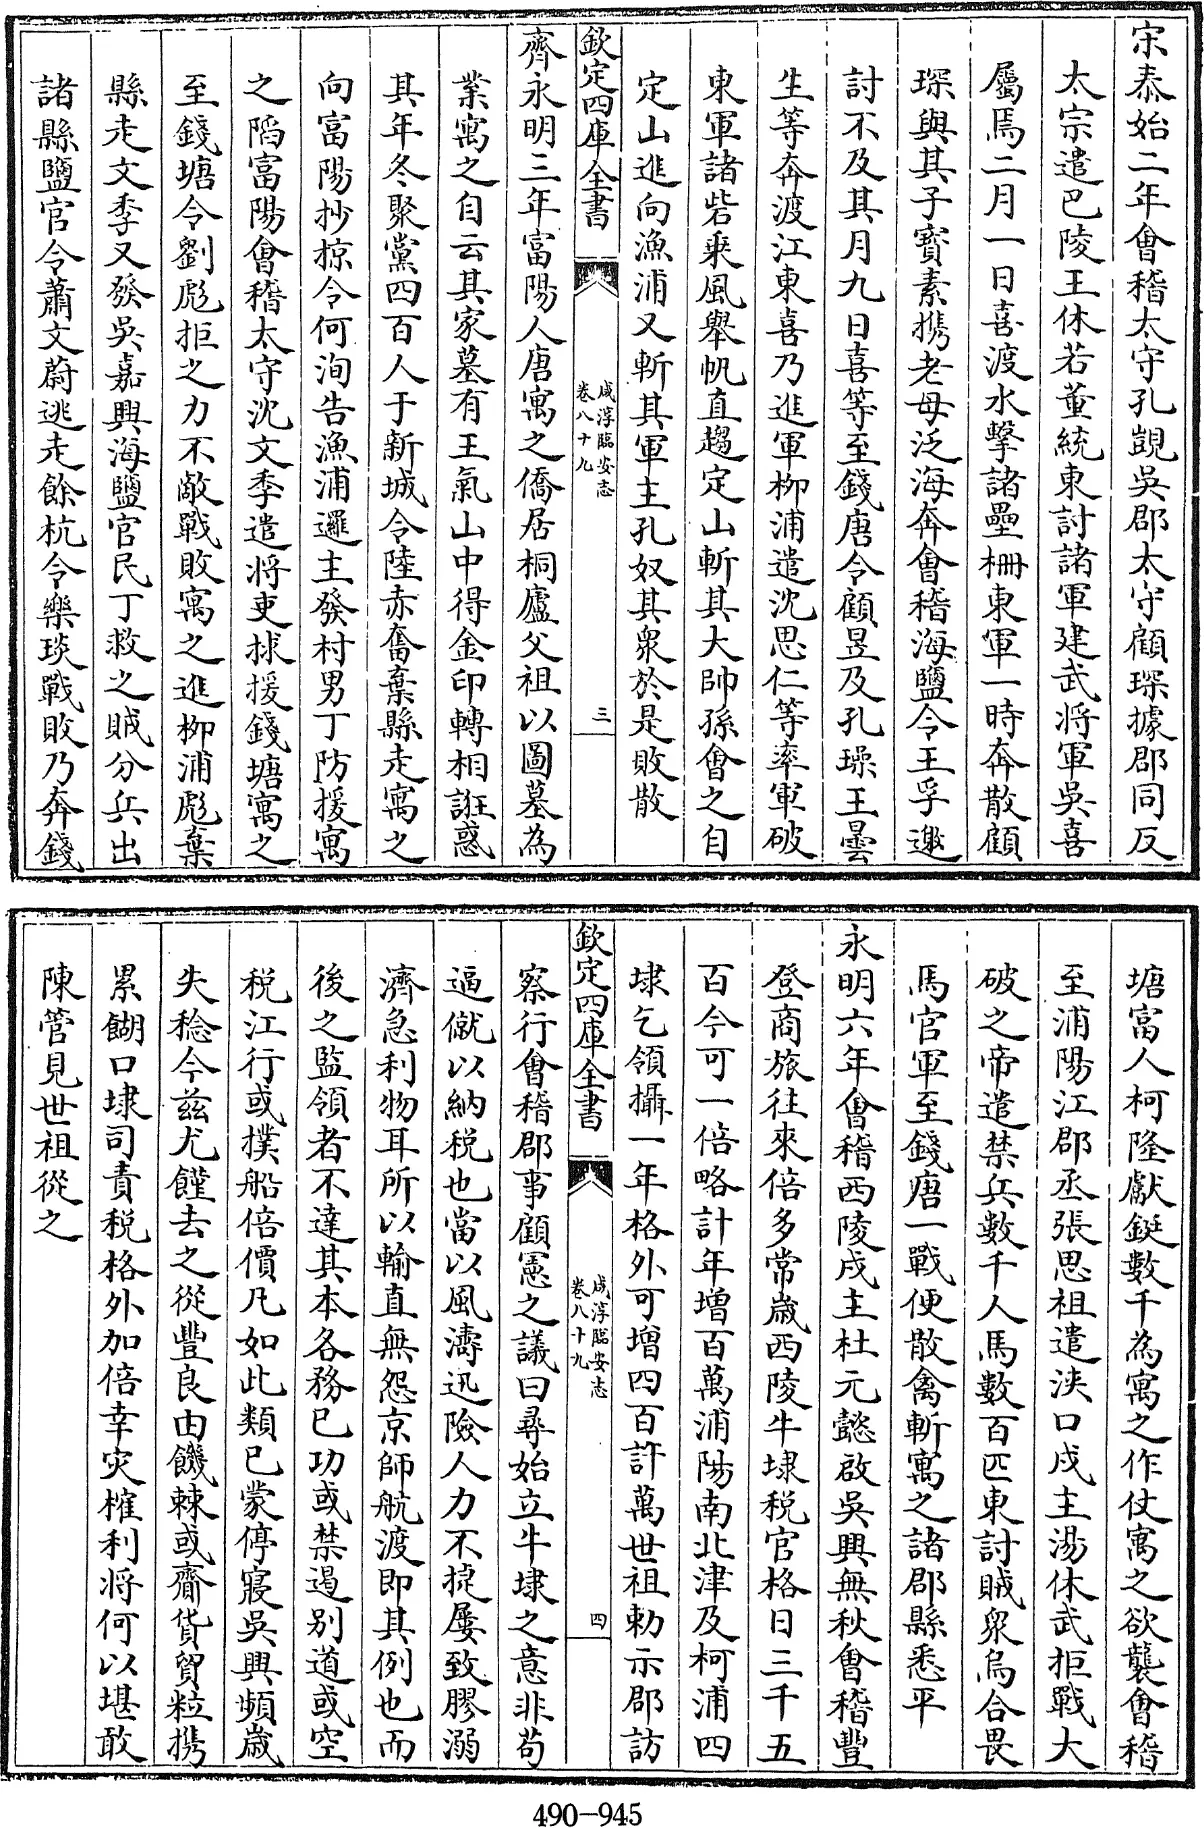 宋泰始二年會稽太守孔覬吳郡太守顧琛據郡同反
太宗遣巴陵王休若董統東討諸軍建武將軍吳喜
屬焉二月一日喜渡水擊諸壘柵東軍一時奔散顧
琛與其子寳素攜老母泛海奔會稽海鹽令王孚邀
討不及其月九日喜等至錢唐令顧昱及孔璪王曇
生等奔渡江東喜乃進軍柳浦遣沈思仁等率軍破
東軍諸砦乘風舉帆直趨定山斬其大帥孫會之自
定山進向漁浦又斬其軍主孔奴其衆於是敗散
欽定四庫全書
咸淳臨安志
卷八十九
三
齊永明三年富陽人唐寓之僑居桐廬父祖以圖墓為
業寓之自云其家墓有王氣山中得金印轉相誑惑
其年冬聚黨四百人于新城令陸赤奮棄縣走寓之
向富陽抄掠令何洵告漁浦邏主發村男丁防援寓
之陷富陽會稽太守沈文季遣將吏捄援錢塘寓之
至錢塘令劉彪拒之力不敵戰敗寓之進栁浦彪棄
縣走文季又發吳嘉興海鹽官民丁救之賊分兵出
諸縣鹽官令蕭文蔚逃走餘杭令樂琰戰敗乃奔錢
塘富人柯隆獻鋌數千為寓之作仗寓之欲襲會稽
至浦陽江郡丞張思祖遣浹口戍主湯休武拒戰大
破之帝遣禁兵數千人馬數百匹東討賊衆烏合畏
馬官軍至錢唐一戰便散禽斬寓之諸郡縣悉平
永明六年會稽西陵戍主杜元懿啟吳興無秋會稽豐
登商旅往來倍多常歲西陵牛埭税官格日三千五
百今可一倍略計年增百萬浦陽南北津及柯浦四
埭乞領攝一年格外可增四百許萬世祖勅示郡訪
欽定四庫全書
咸淳臨安志
卷八十九
四
察行會稽郡事顧憲之議曰尋始立牛埭之意非茍
逼僦以納税也當以風濤迅險人力不㨗屢致膠溺
濟急利物耳所以輸直無怨京師航渡即其例也而
後之監領者不達其本各務已功或禁遏别道或空
税江行或撲船倍價凡如此類已蒙停寢吳興頻歲
失稔今茲尤饉去之從豐良由饑棘或齎貨貿粒攜
累餬口埭司責税格外加倍幸災榷利將何以堪敢
陳管見世祖從之
490-945